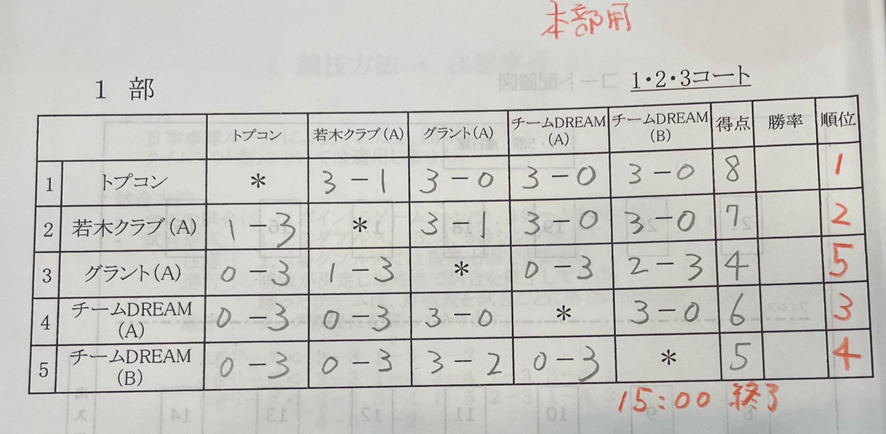 本部用
1 部
1・2・3コート
トプコン 若木クラブ(A) グラント(A) チームDREAM(A) チームDREAM(B) 得点 勝率 順位
1 トプコン * 3-1 3-0 3-0 3-0 8 1
2 若木クラブ(A) 1-3 * 3-1 3-0 3-0 7 2
3 グラント(A) 0-3 1-3 * 0-3 2-3 4 5
4 チームDREAM(A) 0-3 0-3 3-0 * 3-0 6 3
5 チームDREAM(B) 0-3 0-3 3-2 0-3 * 5 4
15:00 終了